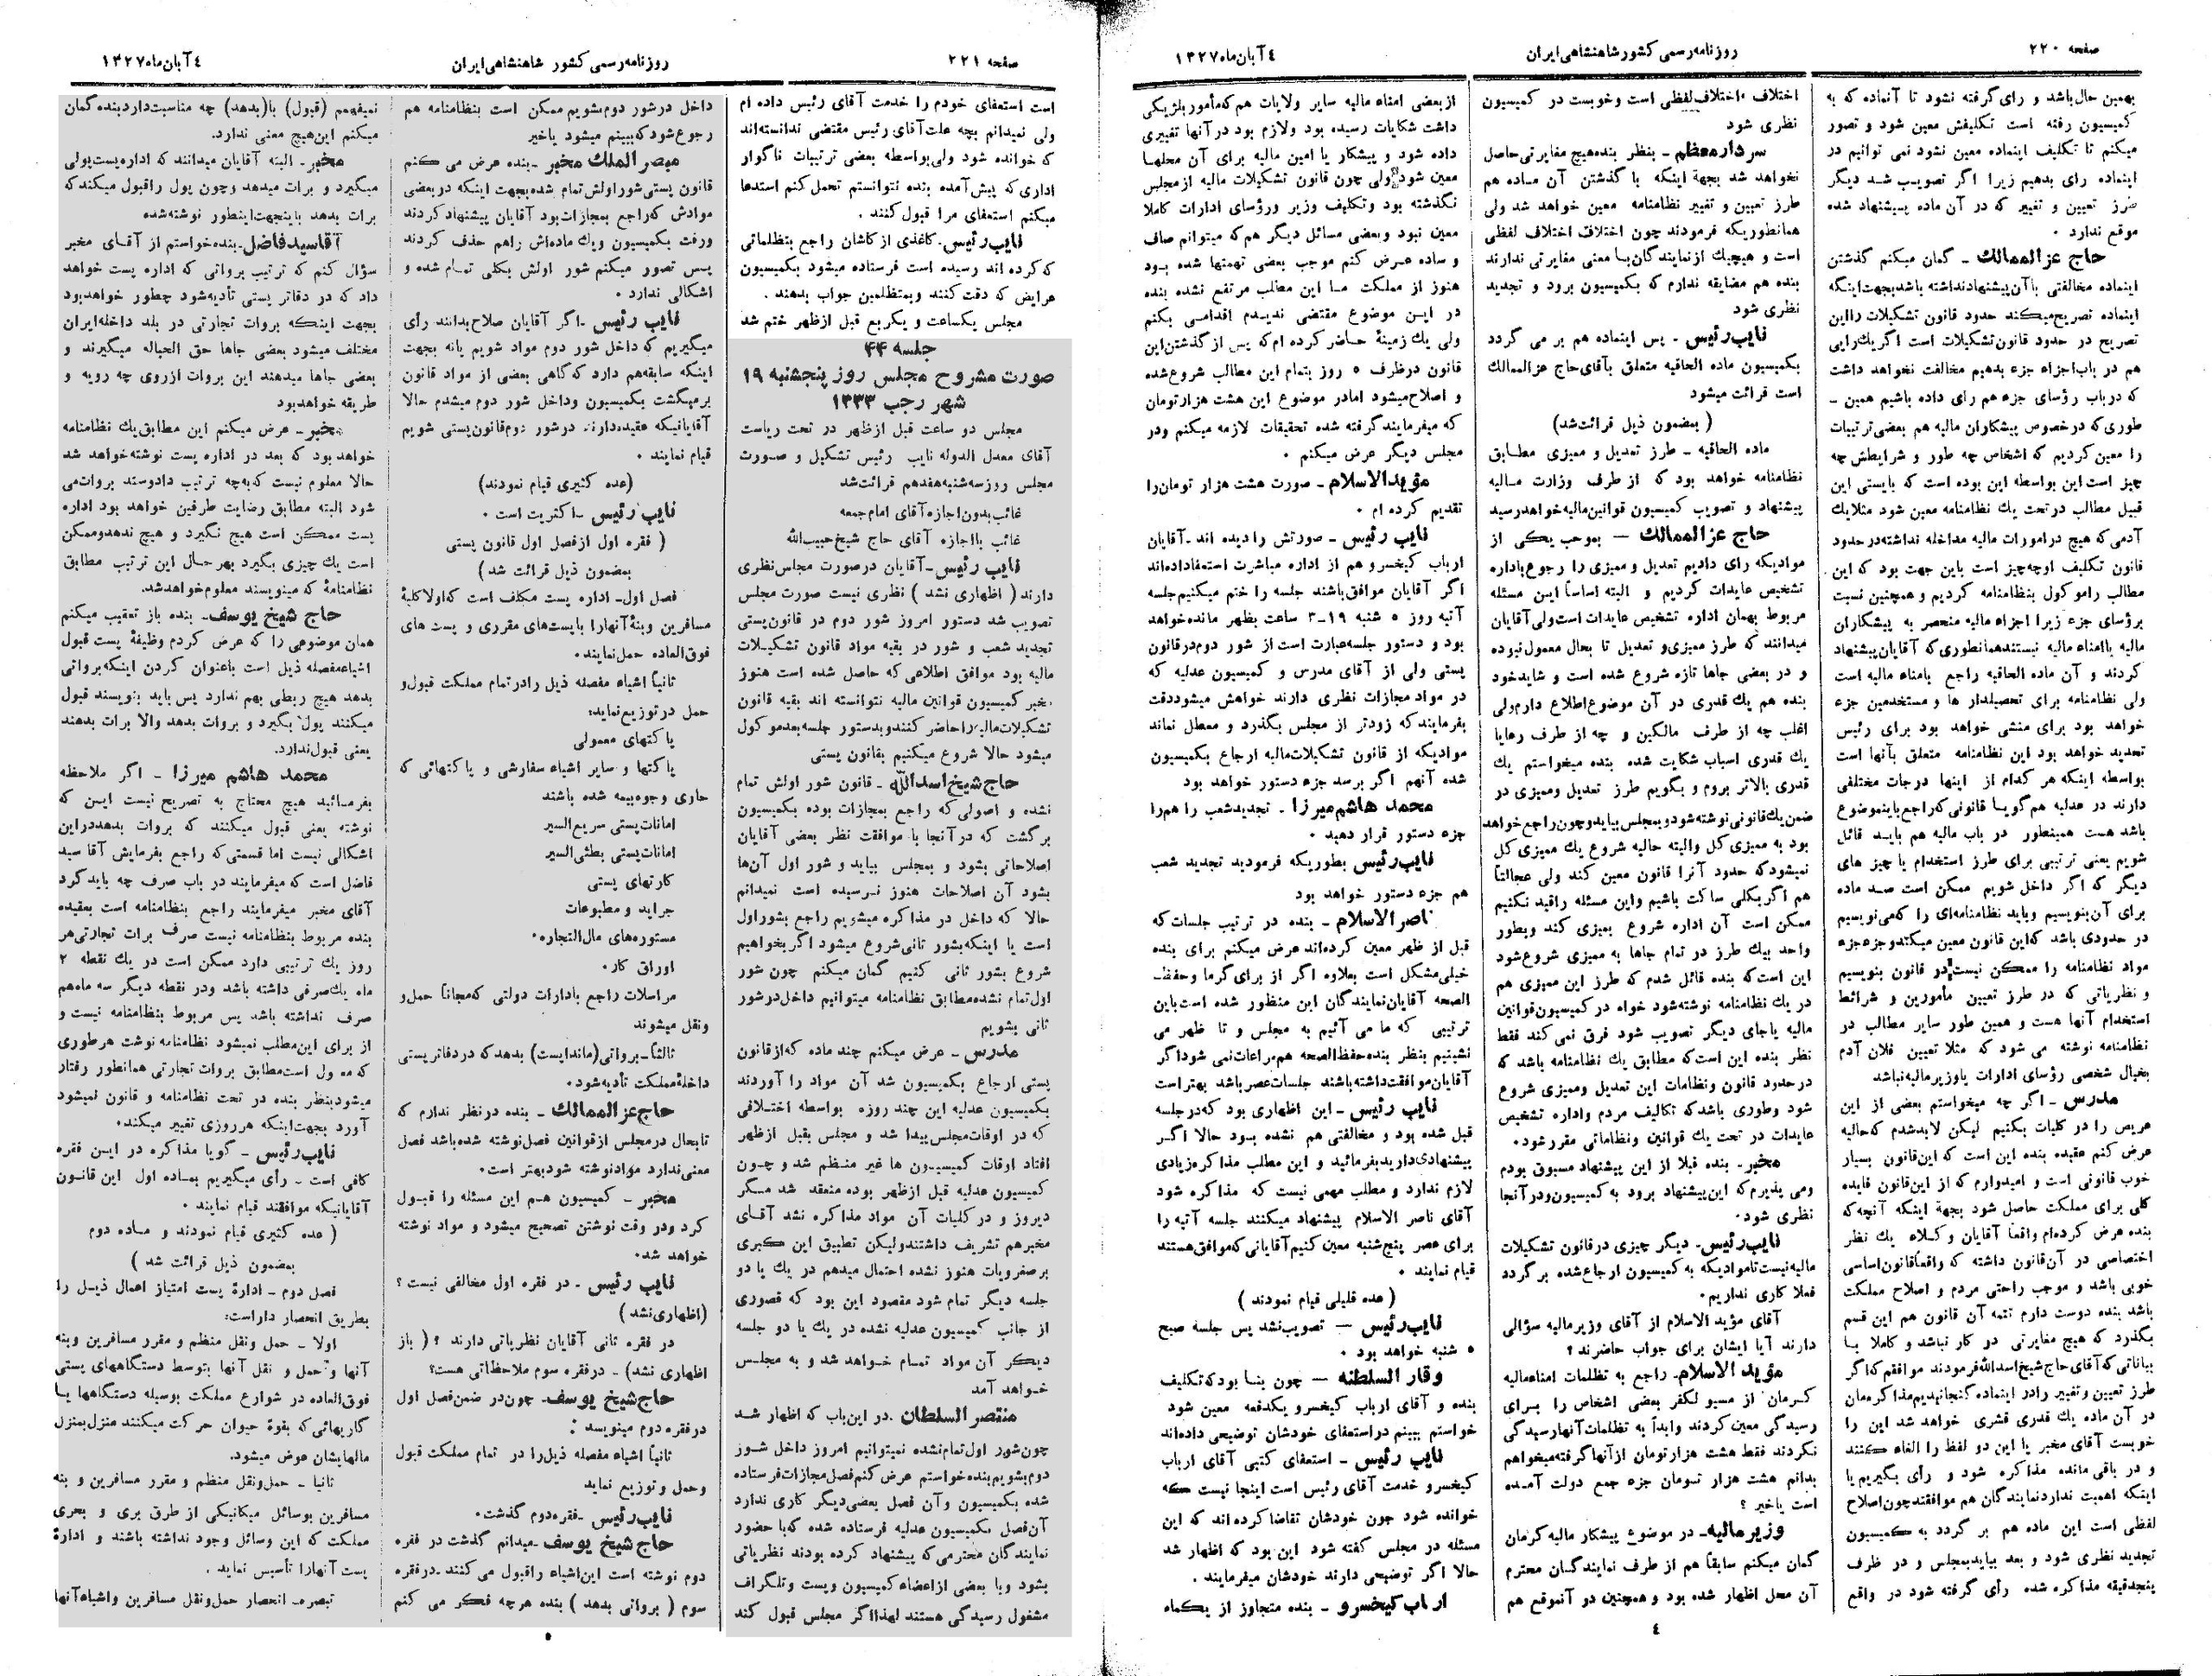 صفحه ۲۲۰
روزنامه رسمی کشور شاهنشاهی ایران
٤ آبان ماه ۱۳۲۷
بهمین حال باشد و رای گرفته نشود تا آنماده که به
کمیسیون رفته است تکلیفش معین شود و تصور
میکنم تا تکلیف اینماده معین نشود نمی توانیم در
اینماده رای بدهیم زیرا اگر تصویب شد دیگر
طرز تعیین و تغییر که در آن ماده پیشنهاد شده
موقع ندارد .
حاج عزالممالک ـ گمان میکنم گذشتن
اینماده مخالفتی با آن پیشنهاد نداشته باشد بجهت اینکه
اینماده تصریح میکند حدود قانون تشکیلات را این
تصریح در حدود قانون تشکیلات است اگر یک رایی
هم در باب اجزاء جزء بدهیم مخالفت نخواهد داشت
که در باب رؤسای جزء هم رای داده باشیم همین ـ
طوری که در خصوص پیشکاران مالیه هم بعضی ترتیبات
را معین کردیم که اشخاص چه طور و شرایطش چه
چیز است این بواسطه این بوده است که بایستی این
قبیل مطالب در تحت یک نظامنامه معین شود مثلا یک
آدمی که هیچ در امورات مالیه مداخله نداشته در حدود
قانون تکلیف او چه چیز است باین جهت بود که این
مطالب را موکول بنظامنامه کردیم و همچنین نسبت
برؤسای جزء زیرا اجزاء مالیه منحصر به پیشکاران
مالیه یا امناء مالیه نیستند همانطوری که آقایان پیشنهاد
کردند و آن ماده الحاقیه راجع بامناء مالیه است
ولی نظامنامه برای تحصیلدار ها و مستخدمین جزء
خواهد بود برای منشی خواهد بود برای رئیس
تحدید خواهد بود این نظامنامه متعلق بآنها است
بواسطه اینکه هر کدام از اینها درجات مختلفی
دارند در عدلیه هم گویا قانونی که راجع باینموضوع
باشد هست همینطور در باب مالیه هم باید قائل
شویم یعنی ترتیبی برای طرز استخدام یا چیز های
دیگر که اگر داخل شویم ممکن است صد ماده
برای آن بنویسیم و باید نظامنامه‌ای را که می نویسیم
در حدودی باشد که این قانون معین میکند و جزء جزء
مواد نظامنامه را ممکن نیست در قانون بنویسیم
و نظریاتی که در طرز تعیین مأمورین و شرائط
استخدام آنها هست و همین طور سایر مطالب در
نظامنامه نوشته می شود که مثلا تعیین فلان آدم
بخیال شخصی رؤسای ادارات یا وزیر مالیه نباشد
مدرس ـ اگر چه میخواستم بعضی از این
عرایض را در کلیات بکنیم لیکن لابد شدم که حالیه
عرض کنم عقیده بنده این است که این قانون بسیار
خوب قانونی است و امیدوارم که از این قانون فایده
کلی برای مملکت حاصل شود بجهة اینکه آنچه که
بنده عرض کرده‌ام واقعاً آقایان وکلاء یک نظر
اختصاصی در آن قانون داشته که واقعاً قانون اساسی
خوبی باشد و موجب راحتی مردم و اصلاح مملکت
باشد بنده دوست دارم تتمه آن قانون هم این قسم
بگذرد که هیچ مغایرتی در کار نباشد و کاملا با
بیاناتی که آقای حاج شیخ اسدالله فرمودند موافقم که اگر
طرز تعیین و تغییر را در اینماده گنجانیدیم مذاکره‌مان
در آن ماده یک قدری قشری خواهد شد این را
خوبست آقای مخبر یا این دو لفظ را الغاء کنند
و در باقی مانده مذاکره شود و رأی بگیریم یا
اینکه اهمیت ندارد نمایندگان هم موافقند چون اصلاح
لفظی است این ماده هم بر گردد به کمیسیون
تجدید نظری شود و بعد بیاید بمجلس و در ظرف
پنجدقیقه مذاکره شده رأی گرفته شود در واقع
اختلاف، اختلاف لفظی است و خوبست در کمیسیون
نظری شود
سردار معظم ـ بنظر بنده هیچ مغایرتی حاصل
نخواهد شد بجهة اینکه با گذشتن آن ماده هم
طرز تعیین و تغییر نظامنامه معین خواهد شد ولی
همانطوریکه فرمودند چون اختلاف اختلاف لفظی
است و هیچیک از نمایندگان با معنی مغایرتی ندارند
بنده هم مضایقه ندارم که بکمیسیون برود و تجدید
نظری شود
نایب رئیس ـ پس اینماده هم بر می گردد
بکمیسیون ماده الحاقیه متعلق بآقای حاج عزالممالک
است قرائت میشود
( بمضمون ذیل قرائت شد)
ماده الحاقیه ـ طرز تعدیل و ممیزی مطابق
نظامنامه خواهد بود که از طرف وزارت مالیه
پیشنهاد و تصویب کمیسیون قوانین مالیه خواهد رسید
حاج عزالممالک — بموجب یکی از
موادیکه رای دادیم تعدیل و ممیزی را رجوع باداره
تشخیص عایدات کردیم و البته اساساً این مسئله
مربوط بهمان اداره تشخیص عایدات است ولی آقایان
میدانند که طرز ممیزی و تعدیل تا بحال معمول نبوده
و در بعضی جاها تازه شروع شده است و شاید خود
بنده هم یک قدری در آن موضوع اطلاع دارم ولی
اغلب چه از طرف مالکین و چه از طرف رعایا
یک قدری اسباب شکایت شده بنده میخواستم یک
قدری بالاتر بروم و بگویم طرز تعدیل و ممیزی در
ضمن یک قانونی نوشته شود و بمجلس بیاید و چون راجع خواهد
بود به ممیزی کل والبته حالیه شروع یک ممیزی کل
نمیشود که حدود آنرا قانون معین کند ولی عجالتاً
هم اگر بکلی ساکت باشیم و این مسئله را قید نکنیم
ممکن است آن اداره شروع بمیزی کند و بطور
واحد بیک طرز در تمام جاها به ممیزی شروع شود
این است که بنده قائل شدم که طرز این ممیزی هم
در یک نظامنامه نوشته شود خواه در کمیسیون قوانین
مالیه یا جای دیگر تصویب شود فرق نمی کند فقط
نظر بنده این است که مطابق یک نظامنامه باشد که
در حدود قانون و نظامات این تعدیل و ممیزی شروع
شود وطوری باشد که تکالیف مردم و اداره تشخیص
عایدات در تحت یک قوانین و نظاماتی مقرر شود.
مخبر ـ بنده قبلا از این پیشنهاد مسبوق بودم
ومی پذیرم که این پیشنهاد برود به کمیسیون و در آنجا
نظری شود.
نایب رئیس ـ دیگر چیزی در قانون تشکیلات
مالیه نیست تا موادیکه به کمیسیون ارجاع شده بر گردد
فعلا کاری نداریم.
آقای مؤید الاسلام از آقای وزیر مالیه سؤالی
دارند آیا ایشان برای جواب حاضرند ؟
مؤید الاسلام ـ راجع به تظلمات امناء مالیه
کرمان از مسیو لکفر بعضی اشخاص را برای
رسیدگی معین کردند وابداً به تظلمات آنها رسیدگی
نکردند فقط هشت هزار تومان از آنها گرفته میخواهم
بدانم هشت هزار تومان جزء جمع دولت آمده
است یا خیر ؟
وزیر مالیه ـ در موضوع پیشکار مالیه کرمان
گمان میکنم سابقاً هم از طرف نمایندگان محترم
آن محل اظهار شده بود و همچنین در آنموقع هم
٤
از بعضی امناء مالیه سایر ولایات هم که مأمور بلژیکی
داشت شکایات رسیده بود ولازم بود در آنها تغییری
داده شود و پیشکار یا امین مالیه برای آن محلها
معین شود ولی چون قانون تشکیلات مالیه از مجلس
نگذشته بود وتکلیف وزیر ورؤسای ادارات کاملا
معین نبود وبعضی مسائل دیگر هم که میتوانم صاف
و ساده عرض کنم موجب بعضی تهمتها شده بود
هنوز از مملکت ما این مطالب مرتفع نشده بنده
در این موضوع مقتضی ندیدم اقدامی بکنم
ولی یک زمینهٔ حاضر کرده ام که پس از گذشتن این
قانون در ظرف ۵ روز بتمام این مطالب شروع شده
و اصلاح میشود اما در موضوع این هشت هزار تومان
که میفرمایند گرفته شده تحقیقات لازمه میکنم و در
مجلس دیگر عرض میکنم .
مؤید الاسلام ـ صورت هشت هزار تومان را
تقدیم کرده ام .
نایب رئیس ـ صورتش را دیده اند ـ آقایان
ارباب کیخسرو هم از اداره مباشرت استعفا داده‌اند
اگر آقایان موافق باشند جلسه را ختم میکنیم جلسه
آتیه روز ۵ شنبه ۱۹ ـ ۳ ساعت بظهر مانده خواهد
بود و دستور جلسه عبارت است از شور دوم در قانون
پستی ولی از آقای مدرس و کمیسیون عدلیه که
در مواد مجازات نظری دارند خواهش میشود دقت
بفرمایند که زودتر از مجلس بگذرد و معطل نماند
موادیکه از قانون تشکیلات مالیه ارجاع بکمیسیون
شده آنهم اگر برسد جزء دستور خواهد بود
محمد هاشم میرزا ـ تجدید شعب را هم را
جزء دستور قرار دهید .
نایب رئیس بطوریکه فرمودید تجدید شعب
هم جزء دستور خواهد بود
ناصر الاسلام ـ بنده در ترتیب جلسات که
قبل از ظهر معین کرده‌اند عرض میکنم برای بنده
خیلی مشکل است بعلاوه اگر از برای گرما وحفظ‌ـ
الصحه آقایان نمایندگان این منظور شده است باین
ترتیبی که ما می آئیم به مجلس و تا ظهر می
نشینیم بنظر بنده حفظ الصحه هم مراعات نمی شود اگر
آقایان موافقت داشته باشند جلسات عصر باشد بهتر است
نایب رئیس ـ این اظهاری بود که در جلسه
قبل شده بود و مخالفتی هم نشده بود حالا اگر
پیشنهادی دارید بفرمائید و این مطلب مذاکره زیادی
لازم ندارد و مطلب مهمی نیست که مذاکره شود
آقای ناصر الاسلام پیشنهاد میکنند جلسه آتیه را
برای عصر پنج‌شنبه معین کنیم آقایانی که موافق هستند
قیام نمایند .
( عده قلیلی قیام نمودند )
نایب رئیس — تصویب نشد پس جلسه صبح
۵ شنبه خواهد بود .
وقار السلطنه — چون بنا بود که تکلیف
بنده و آقای ارباب کیخسرو یکدفعه معین شود
خواستم ببینم در استعفای خودشان توضیحی داده‌اند
نایب رئیس ـ استعفای کتبی آقای ارباب
کیخسرو خدمت آقای رئیس است اینجا نیست که
خوانده شود چون خودشان تقاضا کرده اند که این
مسئله در مجلس گفته شود این بود که اظهار شد
حالا اگر توضیحی دارند خودشان میفرمایند .
ارباب کیخسرو ـ بنده متجاوز از یکماه
صفحه ۲۲۱
روزنامه رسمی کشور شاهنشاهی ایران
٤ آبان ماه ۱۳۲۷
است استعفای خودم را خدمت آقای رئیس داده ام
ولی نمیدانم بچه علت آقای رئیس مقتضی ندانسته‌اند
که خوانده شود ولی بواسطه بعضی ترتیبات ناگوار
اداری که پیش آمده بنده نتوانستم تحمل کنم استدعا
میکنم استعفای مرا قبول کنند .
نایب رئیس ـ کاغذی از کاشان راجع بتظلماتی
که کرده اند رسیده است فرستاده میشود بکمیسیون
عرایض که دقت کنند وبمتظلمین جواب بدهند .
مجلس یکساعت و یکربع قبل از ظهر ختم شد
جلسه ۴۴
صورت مشروح مجلس روز پنجشنبه ۱۹
شهر رجب ۱۳۳۳
مجلس دو ساعت قبل از ظهر در تحت ریاست
آقای معدل الدوله نایب رئیس تشکیل و صورت
مجلس روز سه‌شنبه هفدهم قرائت شد
غائب بدون اجازه آقای امام جمعه
غائب با اجازه آقای حاج شیخ حبیب‌الله
نایب رئیس ـ آقایان در صورت مجلس نظری
دارند ( اظهاری نشد ) نظری نیست صورت مجلس
تصویب شد دستور امروز شور دوم در قانون پستی
تجدید شعب و شور در بقیه مواد قانون تشکیلات
مالیه بود موافق اطلاعی که حاصل شده است هنوز
مخبر کمیسیون قوانین مالیه نتوانسته اند بقیه قانون
تشکیلات مالیه را حاضر کنند و بدستور جلسه بعد موکول
میشود حالا شروع میکنیم بقانون پستی
حاج شیخ اسدالله ـ قانون شور اولش تمام
نشده و اصولی که راجع بمجازات بوده بکمیسیون
برگشت که در آنجا با موافقت نظر بعضی آقایان
اصلاحاتی بشود و بمجلس بیاید و شور اول آن‌ها
بشود آن اصلاحات هنوز نرسیده است نمیدانم
حالا که داخل در مذاکره میشویم راجع بشور اول
است یا اینکه بشور ثانی شروع میشود اگر بخواهیم
شروع بشور ثانی کنیم گمان میکنم چون شور
اول تمام نشده مطابق نظامنامه میتوانیم داخل در شور
ثانی بشویم
مدرس ـ عرض میکنم چند ماده که از قانون
پستی ارجاع بکمیسیون شد آن مواد را آوردند
بکمیسیون عدلیه این چند روزه بواسطه اختلافی
که در اوقات مجلس پیدا شد و مجلس بقبل از ظهر
افتاد اوقات کمیسیون ها غیر منظم شد و چون
کمیسیون عدلیه قبل از ظهر بوده منعقد شد مگر
دیروز و در کلیات آن مواد مذاکره نشد آقای
مخبر هم تشریف داشتند ولیکن تطبیق این کبری
بر صغرویات هنوز نشده احتمال میدهم در یک یا دو
جلسه دیگر تمام شود مقصود این بود که قصوری
از جانب کمیسیون عدلیه نشده در یک یا دو جلسه
دیگر آن مواد تمام خواهد شد و به مجلس
خواهد آمد
منتصر السلطان ـ در این باب که اظهار شد
چون شور اول تمام نشده نمیتوانیم امروز داخل شور
دوم بشویم بنده خواستم عرض کنم فصل مجازات فرستاده
شده بکمیسیون وآن فصل بعضی دیگر کاری ندارد
آن فصل بکمیسیون عدلیه فرستاده شده که با حضور
نمایندگان محترمی که پیشنهاد کرده بودند نظریاتی
بشود وبا بعضی از اعضاء کمیسیون وپست وتلگراف
مشغول رسیدگی هستند لهذا اگر مجلس قبول کند
داخل در شور دوم بشویم ممکن است بنظامنامه هم
رجوع شود که ببینم میشود یا خیر
مبصر الملک مخبر ـ بنده عرض می کنم
قانون پستی شور اولش تمام شده بجهت اینکه در بعضی
موادش که راجع بمجازات بود آقایان پیشنهاد کردند
ورفت بکمیسیون ویک ماده‌اش راهم حذف کردند
پس تصور میکنم شور اولش بکلی تمام شده و
اشکالی ندارد .
نایب رئیس ـ اگر آقایان صلاح بدانند رأی
میگیریم که داخل شور دوم مواد شویم یا نه بجهت
اینکه سابقه هم دارد که گاهی بعضی از مواد قانون
برمیگشت بکمیسیون وداخل شور دوم میشدم حالا
آقایانیکه عقیده دارند در شور دوم قانون پستی شویم
قیام نمایند .
(عده کثیری قیام نمودند)
نایب رئیس ـ اکثریت است .
( فقره اول از فصل اول قانون پستی
بمضمون ذیل قرائت شد )
فصل اول ـ اداره پست مکلف است که اولا کلیهٔ
مسافرین وبنهٔ آنها را با پست‌های مقرری و پست های
فوق‌العاده حمل نمایند.
ثانیاً اشیاء مفصله ذیل را در تمام مملکت قبول و
حمل در توزیع نماید:
پاکتهای معمولی
پاکتها و سایر اشیاء سفارشی و پاکتهائی که
حاوی وجوه بیمه شده باشند
امانات پستی سریع‌السیر
امانات پستی بطئی‌السیر
کارتهای پستی
جراید و مطبوعات
مستوره‌های مال‌التجاره.
اوراق کار.
مراسلات راجع بادارات دولتی که مجاناً حمل و
ونقل میشوند
ثالثاً ـ برواتی (ماندا پست) بدهد که در دفاتر پستی
داخلهٔ مملکت تأدیه شود.
حاج عزالممالک ـ بنده در نظر ندارم که
تابحال در مجلس از قوانین فصل نوشته شده باشد فصل
معنی ندارد مواد نوشته شود بهتر است.
مخبر ـ کمیسیون هم این مسئله را قبول
کرد ودر وقت نوشتن تصحیح میشود و مواد نوشته
خواهد شد.
نایب رئیس ـ در فقره اول مخالفی نیست ؟
(اظهاری نشد)
در فقره ثانی آقایان نظریاتی دارند ؟ ( باز
اظهاری نشد) ـ در فقره سوم ملاحظاتی هست؟
حاج شیخ یوسف ـ چون در ضمن فصل اول
در فقره دوم مینویسد :
ثانیاً اشیاء مفصله ذیل را در تمام مملکت قبول
وحمل وتوزیع نماید
نایب رئیس ـ فقره دوم گذشت.
حاج شیخ یوسف ـ میدانم گذشت در فقره
دوم نوشته است این اشیاء را قبول می کنند ـ در فقره
سوم ( برواتی بدهد ) بنده هرچه فکر می کنم
نمیفهمم (قبول) با(بدهد) چه مناسبت دارد بنده گمان
میکنم این هیچ معنی ندارد.
مخبر ـ البته آقایان میدانند که اداره پست پولی
میگیرد و برات میدهد وچون پول را قبول میکند که
برات بدهد باینجهت اینطور نوشته شده
آقا سید فاضل ـ بنده خواستم از آقای مخبر
سؤال کنم که ترتیب برواتی که اداره پست خواهد
داد که در دفاتر پستی تأدیه شود چطور خواهد بود
بجهت اینکه بروات تجارتی در بلد داخله ایران
مختلف میشود بعضی جاها حق الحواله میگیرند و
بعضی جاها میدهند این بروات از روی چه رویه و
طریقه خواهد بود
مخبر ـ عرض میکنم این مطابق یک نظامنامه
خواهد بود که بعد در اداره پست نوشته خواهد شد
حالا معلوم نیست که به چه ترتیب داد و ستد بروات می
شود البته مطابق رضایت طرفین خواهد بود اداره
پست ممکن است هیچ نگیرد و هیچ ندهد وممکن
است یک چیزی بگیرد بهر حال این ترتیب مطابق
نظامنامهٔ که مینویسند معلوم خواهد شد.
حاج شیخ یوسف ـ بنده باز تعقیب میکنم
همان موضوعی را که عرض کردم وظیفهٔ پست قبول
اشیاء مفصله ذیل است با عنوان کردن اینکه برواتی
بدهد هیچ ربطی بهم ندارد پس باید بنویسند قبول
میکنند پول بگیرد و بروات بدهد والا برات بدهند
یعنی قبول ندارد.
محمد هاشم میرزا ـ اگر ملاحظه
بفرمائید هیچ محتاج به تصریح نیست این که
نوشته یعنی قبول میکنند که بروات بدهد در این
اشکالی نیست اما قسمتی که راجع بفرمایش آقا سید
فاضل است که میفرمایند در باب صرف چه باید کرد
آقای مخبر میفرمایند راجع بنظامنامه است بعقیده
بنده مربوط بنظامنامه نیست صرف برات تجارتی هر
روز یک ترتیبی دارد ممکن است در یک نقطه ۲
ماه یک صرفی داشته باشد ودر نقطه دیگر سه ماه هم
صرف نداشته باشد پس مربوط بنظامنامه نیست و
از برای این مطلب نمیشود نظامنامه نوشت هر طوری
که معمول است مطابق بروات تجارتی همانطور رفتار
میشود بنظر بنده در تحت نظامنامه و قانون نمیشود
آورد بجهت اینکه هر روزی تغییر میکند.
نایب رئیس ـ گویا مذاکره در این فقره
کافی است ـ رأی میگیریم بماده اول این قانون
آقایانیکه موافقند قیام نمایند .
( عده کثیری قیام نمودند و ماده دوم
بمضمون ذیل قرائت شد )
فصل دوم ـ ادارهٔ پست امتیاز اعمال ذیل را
بطریق انحصار داراست:
اولا ـ حمل ونقل منظم و مقرر مسافرین وبنه
آنها وحمل و نقل آنها بتوسط دستگاههای پستی
فوق‌العاده در شوارع مملکت بوسیله دستگاهها یا
گاریهائی که بقوهٔ حیوان حرکت میکنند منزل بمنزل
مالهایشان عوض میشود.
ثانیا ـ حمل ونقل منظم و مقرر مسافرین و بنه
مسافرین بوسائل میکانیکی از طرق بری و بحری
مملکت که این وسائل وجود نداشته باشند و ادارهٔ
پست آنها را تأسیس نماید .
تبصره ـ انحصار حمل ونقل مسافرین واشیاء آنها
۵